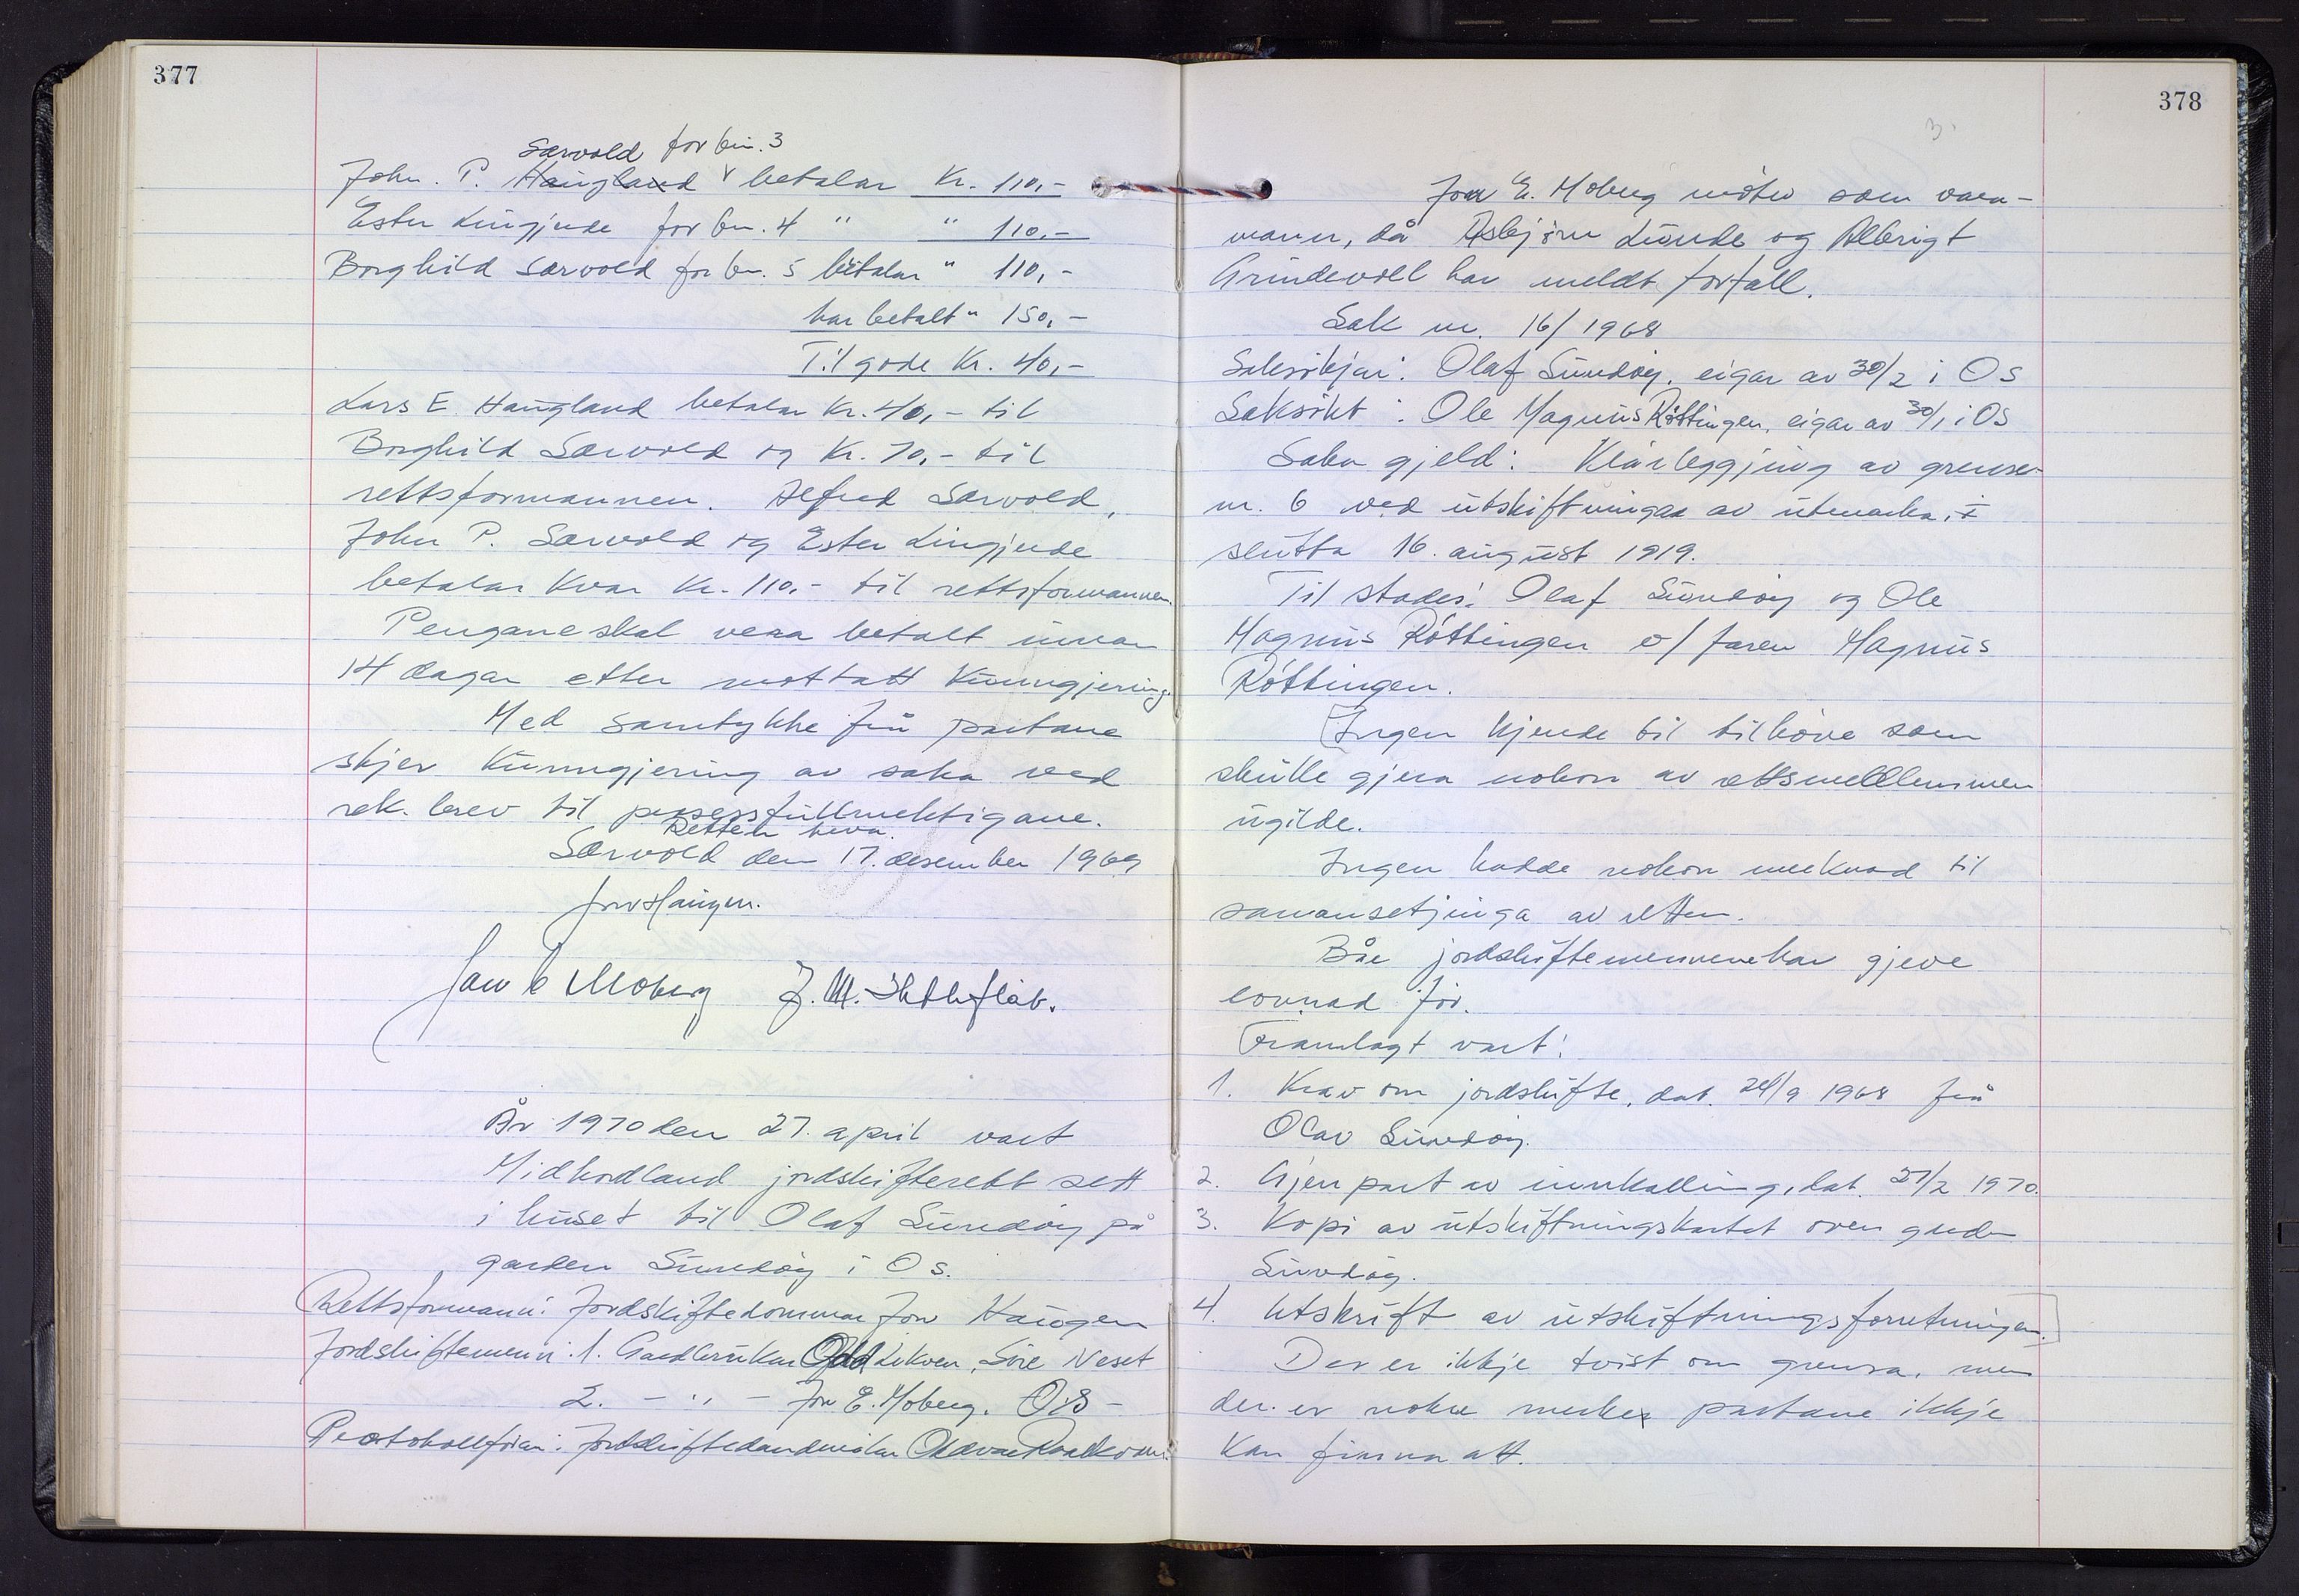 377
Særvold for bn. 3
John. P. Haugland betalar Kr. 110,-
Ester Lingjerde for bn. 4 " " 110,-
Borghild Særvold for bn. 5 betalar " 110,-
har betalt " 150,-
Til gode Kr. 40,-
Lars E. Haugland betalar Kr. 40,- til
Borghild Særvold og Kr. 70,- til
rettsformannen. Alfred Særvold,
John P. Særvold og Ester Lingjerde
betalar kvar Kr. 110,- til rettsformannen.
Pengane skal vera betalt innan
14 dagar etter mottatt kunngjering.
Med samtykke frå partane
skjer kunngjering av saka ved
rek. brev til prosessfullmektigane.
Retten heva.
Særvold den 17. desember 1969
Jon Haugen.
Jon E Moberg J. M.
År 1970 den 27. april vart
Midhordland jordskifterett sett
i huset til Olaf Sundøy på
garden Sundøy i Os.
Rettsformann: Jordskiftedommar Jon Haugen
Jordskiftemenn: 1. Gardbrukar Odd Lekven, Søre Neset
2. - " - Jon E. Moberg. Os -
Protokollførar: Jordskiftekandidat
378
3.
Jon E. Moberg møter som vara-
mann, då Asbjørn Lunde og Albrigt
Grindevoll har meldt forfall.
Sak nr. 16/1968
Saksøkjar: Olaf Sundøy, eigar av 30/2 i Os
Saksøkt: Ole Magnus Røttingen, eigar av 30/1 i Os
Saka gjeld: Klårleggjing av grense-
nr. 6 ved utskiftninga av utmarka,
slutta 16. august 1919.
Til stades: Olaf Sundøy og Ole
Magnus Røttingen v/ faren Magnus
Røttingen.
Ingen kjende til tilhøve som
skulle gjera nokon av rettsmedlemmen
ugilde.
Ingen hadde nokon merknad til
samansetjinga av retten.
Båe jordskiftemennene har gjeve
lovnad før.
Framlagt vart:
1. Krav om jordskifte, dat. 24/9 1968 frå
Olav Sundøy.
2. Gjenpart av innkalling, dat. 27/2 1970.
3. Kopi av utskiftningskartet over garden
Sundøy.
4. Utskrift av utskiftningsforretningen.
Der er ikkje tvist om grensa, men
der er nokre merke partane ikkje
kan finna att.